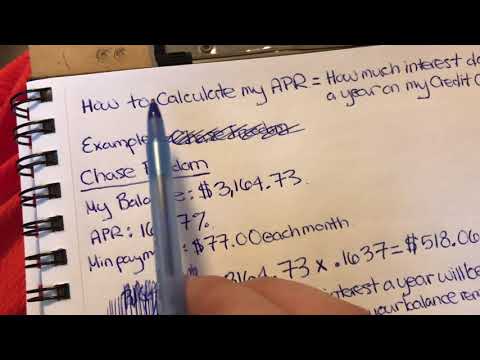 How to Calculate my APR = How much interest do
a year on my Credit C
Example
Chase
My Balance: $3,164.73
APR: 7%
Min $77.00 each month
3164.73 x .1637 = $518.06
interest a year will be
your balance rem